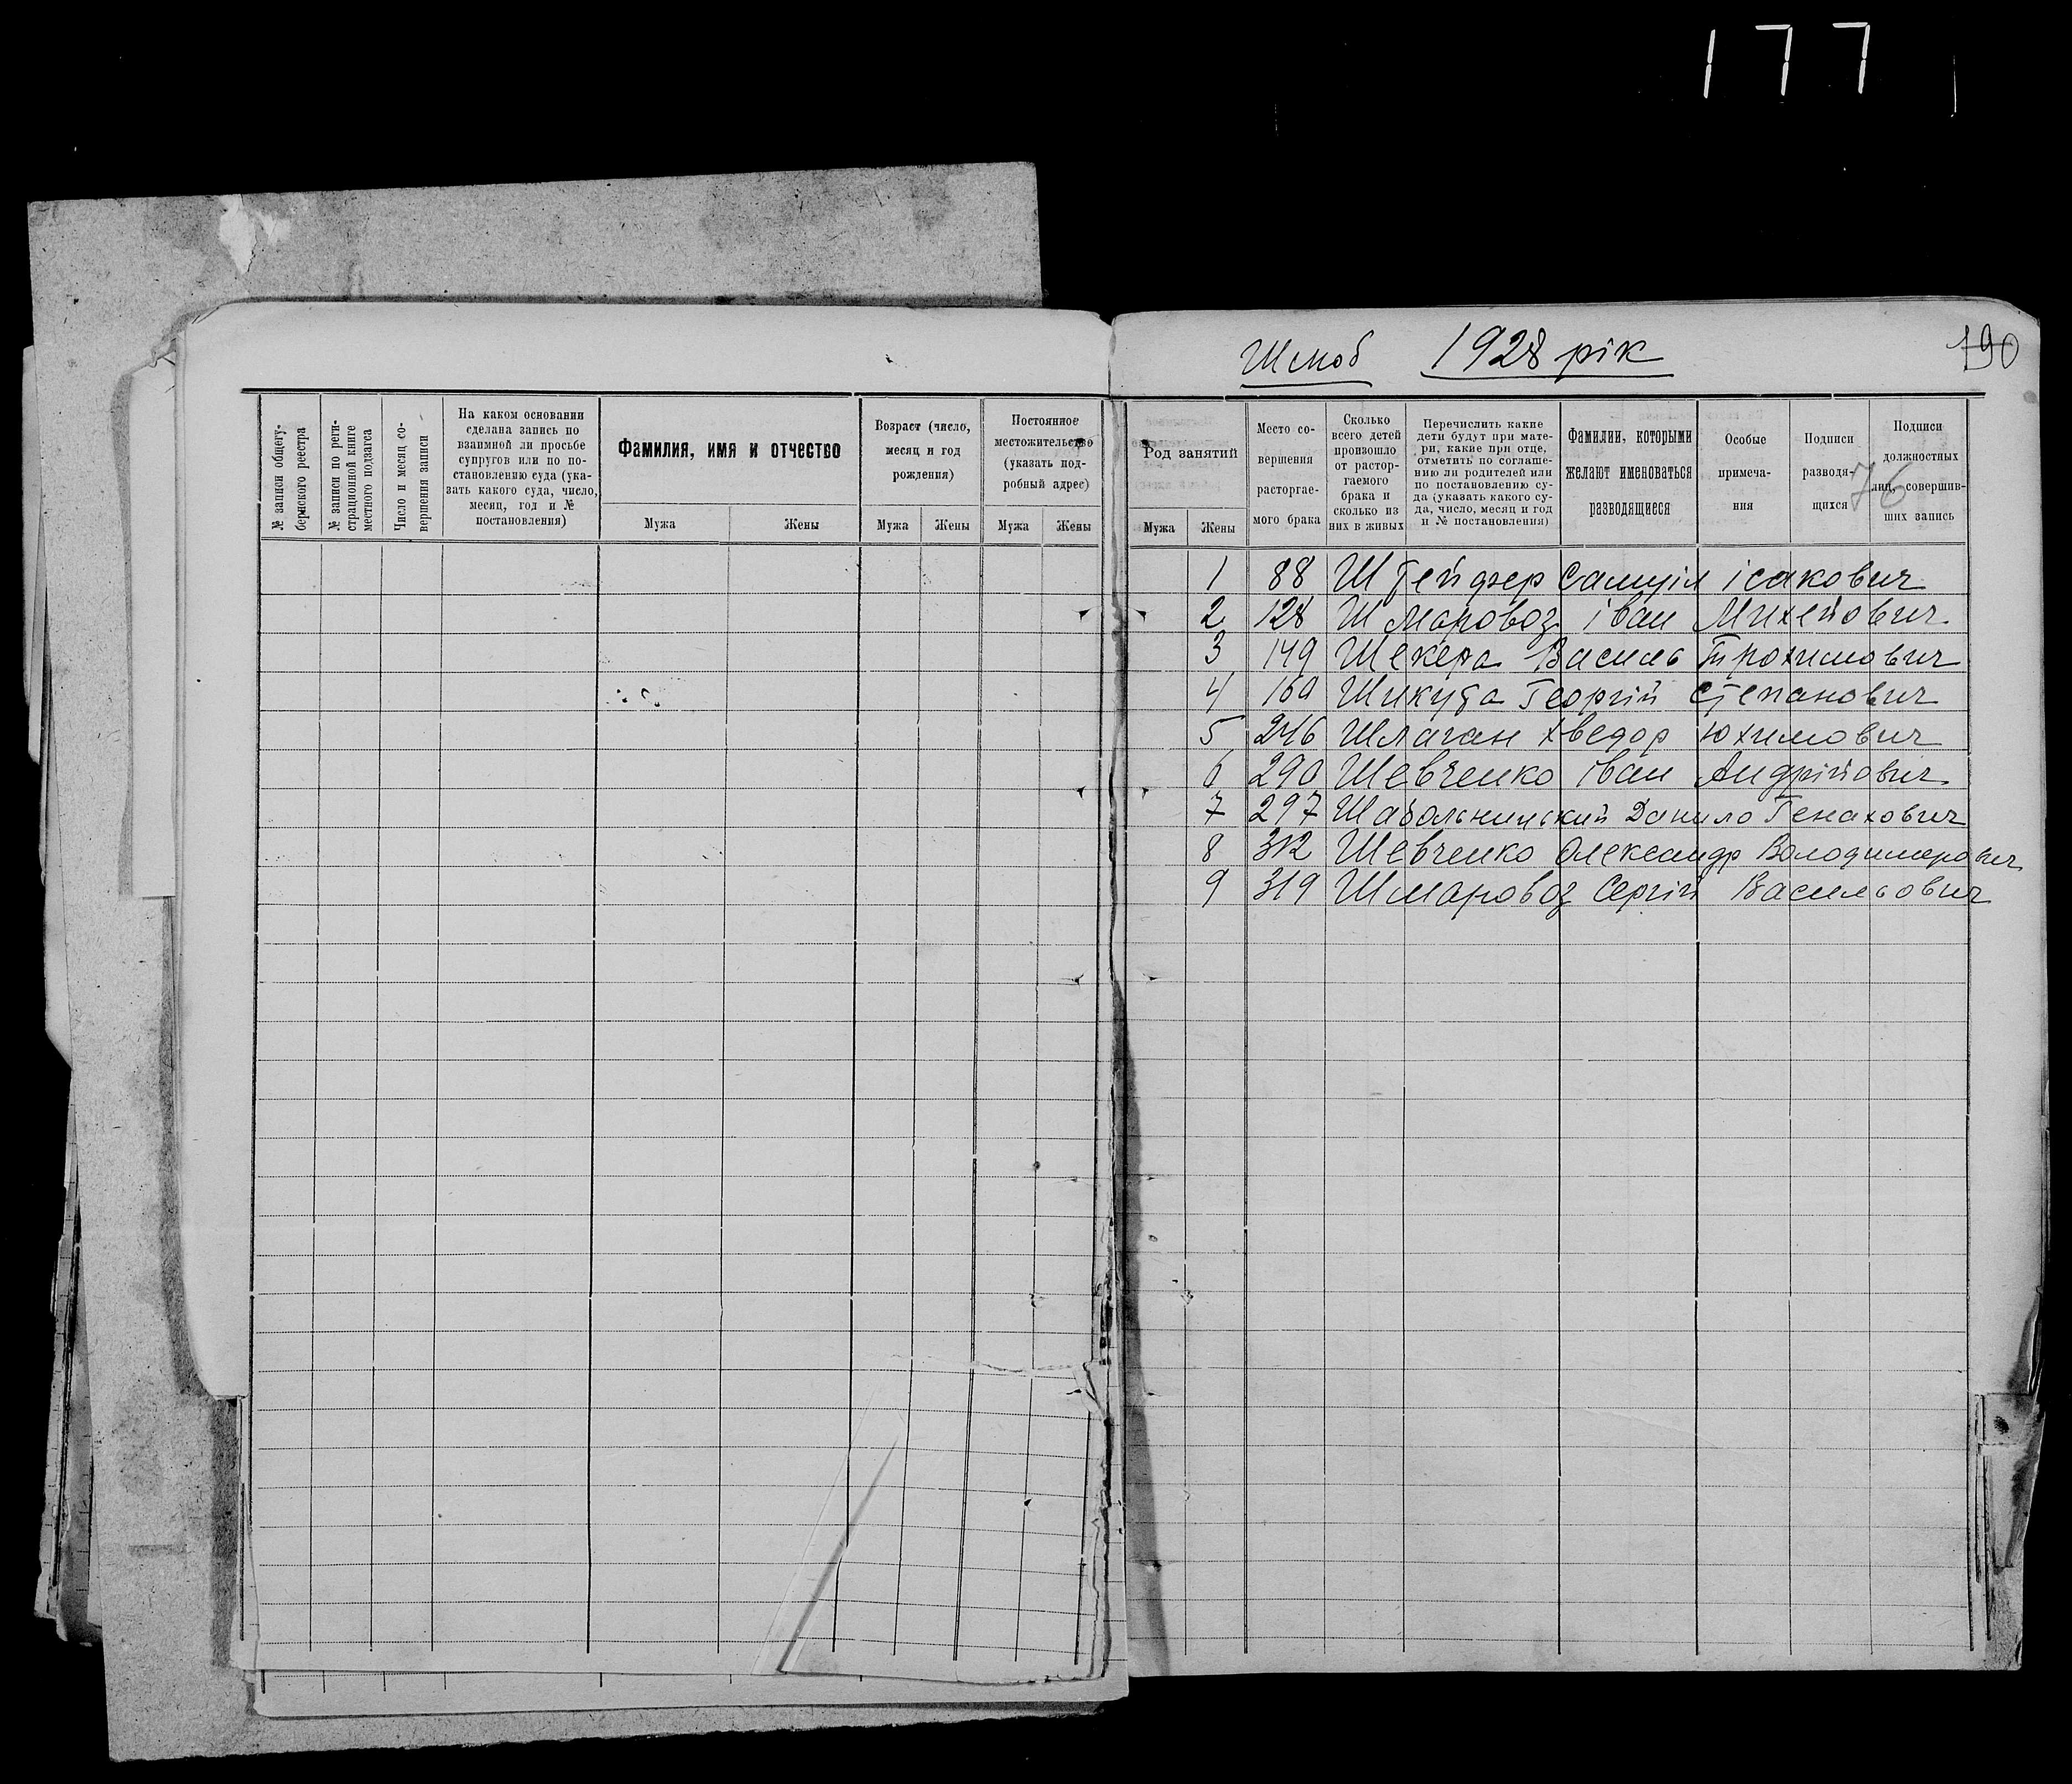 177
Шлюб 1928 рік
190
76
№ записи общегубернского реестра
№ записи по регистрационной книге местного подзагса
Число и месяц совершения записи
На каком основании
сделана запись по
взаимной ли просьбе
супругов или по по-
становлению суда (ука-
зать какого суда, число,
месяц, год и №
постановления)
Фамилия, имя и отчество
Мужа Жены
Возраст (число,
месяц и год
рождения)
Мужа Жены
Постоянное
местожительство
(указать под-
робный адрес)
Мужа Жены
Род занятий
Мужа Жены
Место со-
вершения
расторгае-
мого брака
Сколько
всего детей
произошло
от растор-
гаемого
брака и
сколько из
них в живых
Перечислить какие
дети будут при мате-
ри, какие при отце,
отметить по соглаше-
нию ли родителей или
по постановлению су-
да (указать какого су-
да, число, месяц и год
и № постановления)
Фамилии, которыми
желают именоваться
разводящиеся
Особые
примеча-
ния
Подписи
разводя-
щихся
Подписи
должностных
лиц, совершив-
ших запись
1 88 Штейфер Самуіл ісакович
2 128 Шмаровоз іван Михейович
3 149 Шекера Василь Трохимович
4 160 Шикута Георгій Степанович
5 246 Шлаган Хведор Юхимович
6 290 Шевченко іван Андрійович
7 297 Данило Генахович
8 312 Шевченко Олександр Володимирович
9 319 Шмаровоз Сергій Васильович